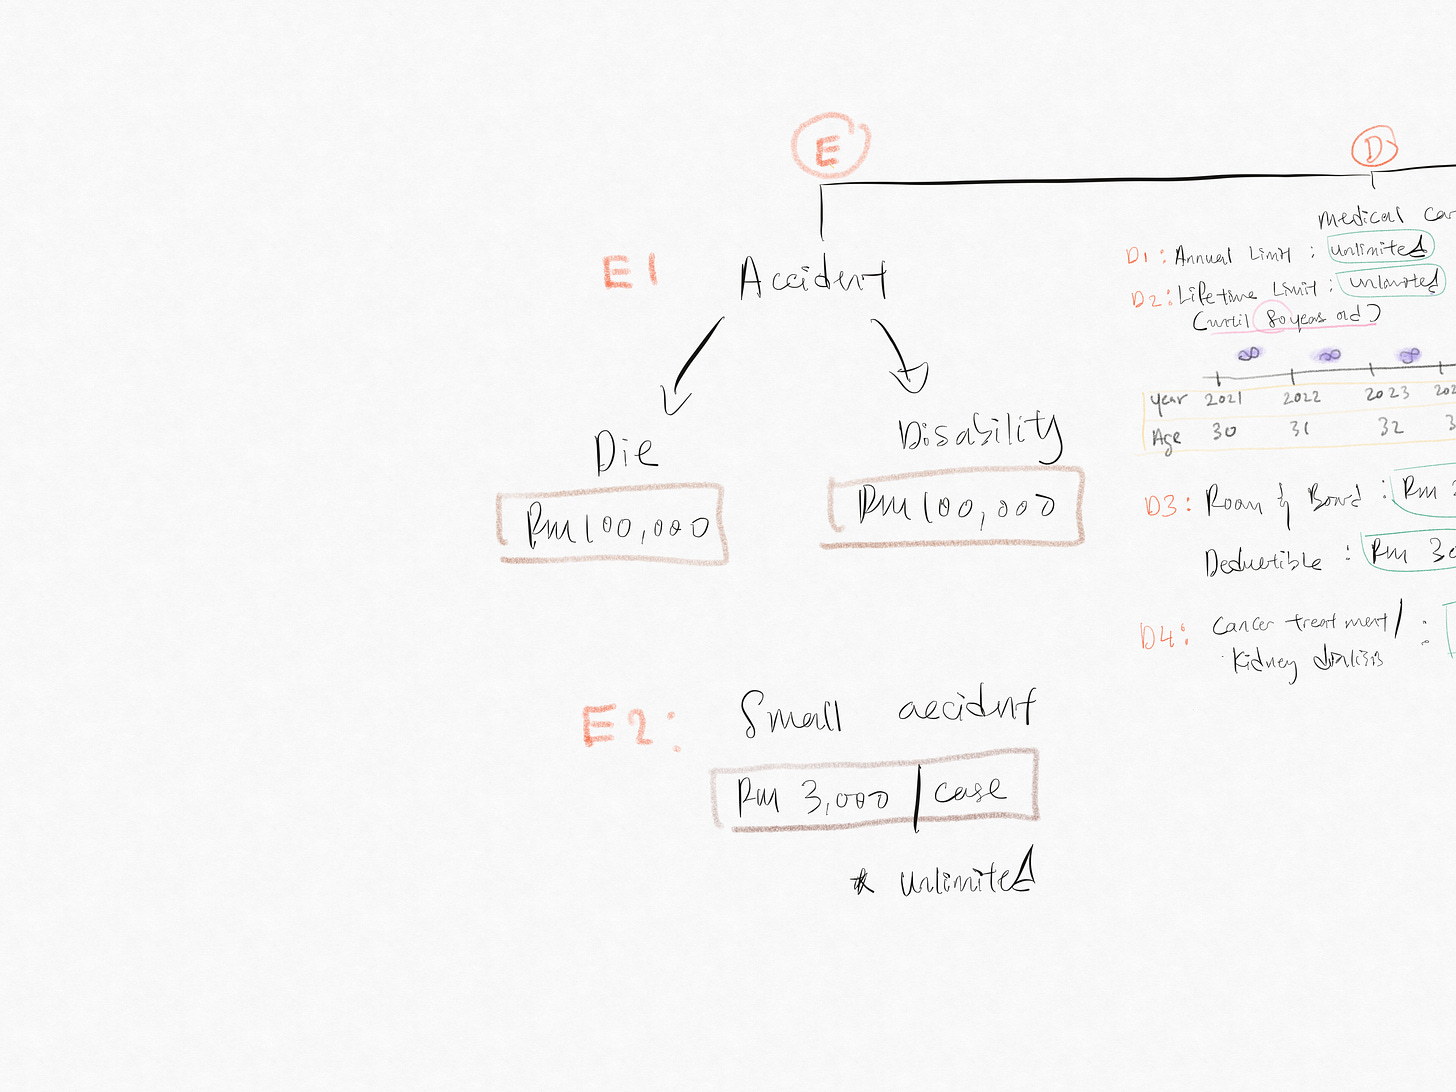 E
E1
Accident
Die
Disability
RM 100,000
RM 100,000
E2:
Small accident
RM 3,000 / case
* unlimited
D
Medical
D1: Annual Limit : unlimited
D2: Lifetime Limit : unlimited
(until 80 years old)
∞ ∞ ∞
year 2021 2022 2023
Age 30 31 32
D3: Room & Board : RM
Deductible : RM
D4: Cancer treatment /
kidney dialisis :